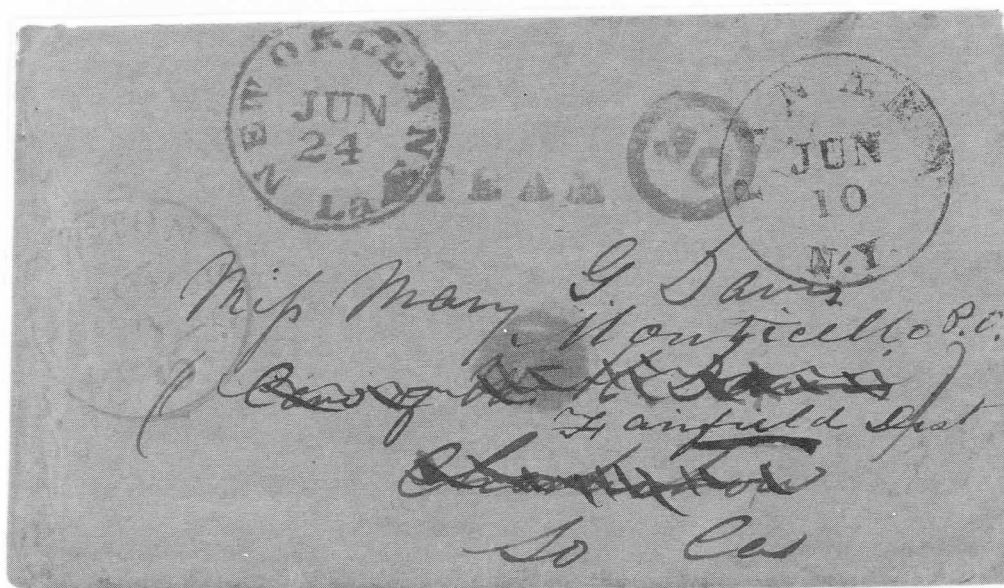 NEW ORLEANS
JUN
24
La
STEAM
PANAMA
JUN
10
N.Y
Miss Mary G Davis
Monticello P.O.
(Care of
)
Fairfield Dist
Charleston
So Ca